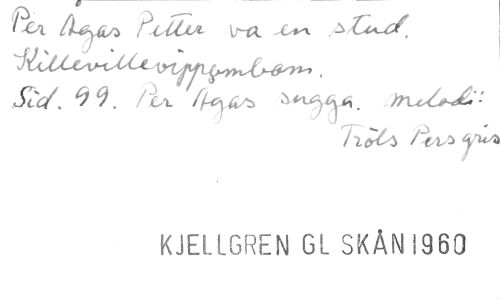 Per Agas Petter va en stud.
Killevillevippombom.
Sid. 99. Per Agas sugga. melodi:
Tröls Persgris
KJELLGREN GL SKÅN 1960